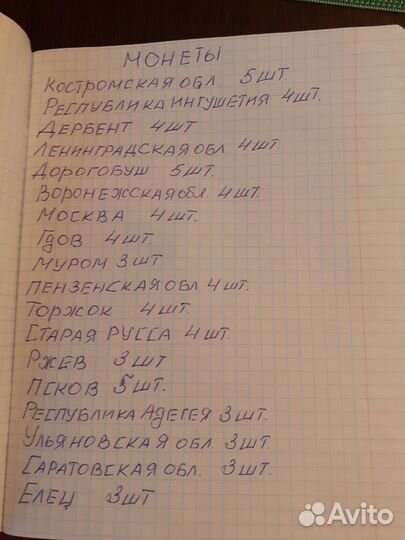 МОНЕТЫ
КОСТРОМСКАЯ ОБЛ. 5 ШТ
РЕСПУБЛИКА ИНГУШЕТИЯ 4 ШТ.
ДЕРБЕНТ 4 ШТ
ЛЕНИНГРАДСКАЯ ОБЛ 4 ШТ
ДОРОГОБУШ 5 ШТ.
ВОРОНЕЖССКАЯ ОБЛ. 4 ШТ.
МОСКВА 4 ШТ.
ГДОВ 4 ШТ.
МУРОМ 3 ШТ.
ПЕНЗЕНСКАЯ ОБЛ. 4 ШТ.
ТОРЖОК 4 ШТ.
СТАРАЯ РУССА 4 ШТ.
РЖЕВ 3 ШТ
ПСКОВ 5 ШТ.
РЕСПУБЛИКА АДЕГЕЯ 3 ШТ.
УЛЬЯНОВСКАЯ ОБЛ. 3 ШТ.
САРАТОВСКАЯ ОБЛ. 3 ШТ.
ЕЛЕЦ 3 ШТ
Avito